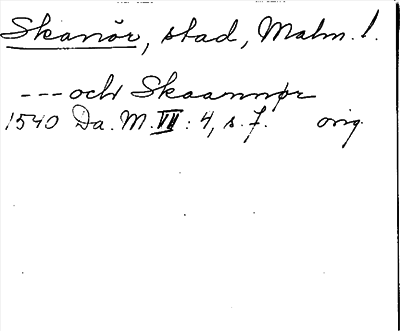 Skanör, stad, Malm. l.
--- och Skaannør
1540 Da. M. VII : 4, s. 7. orig.